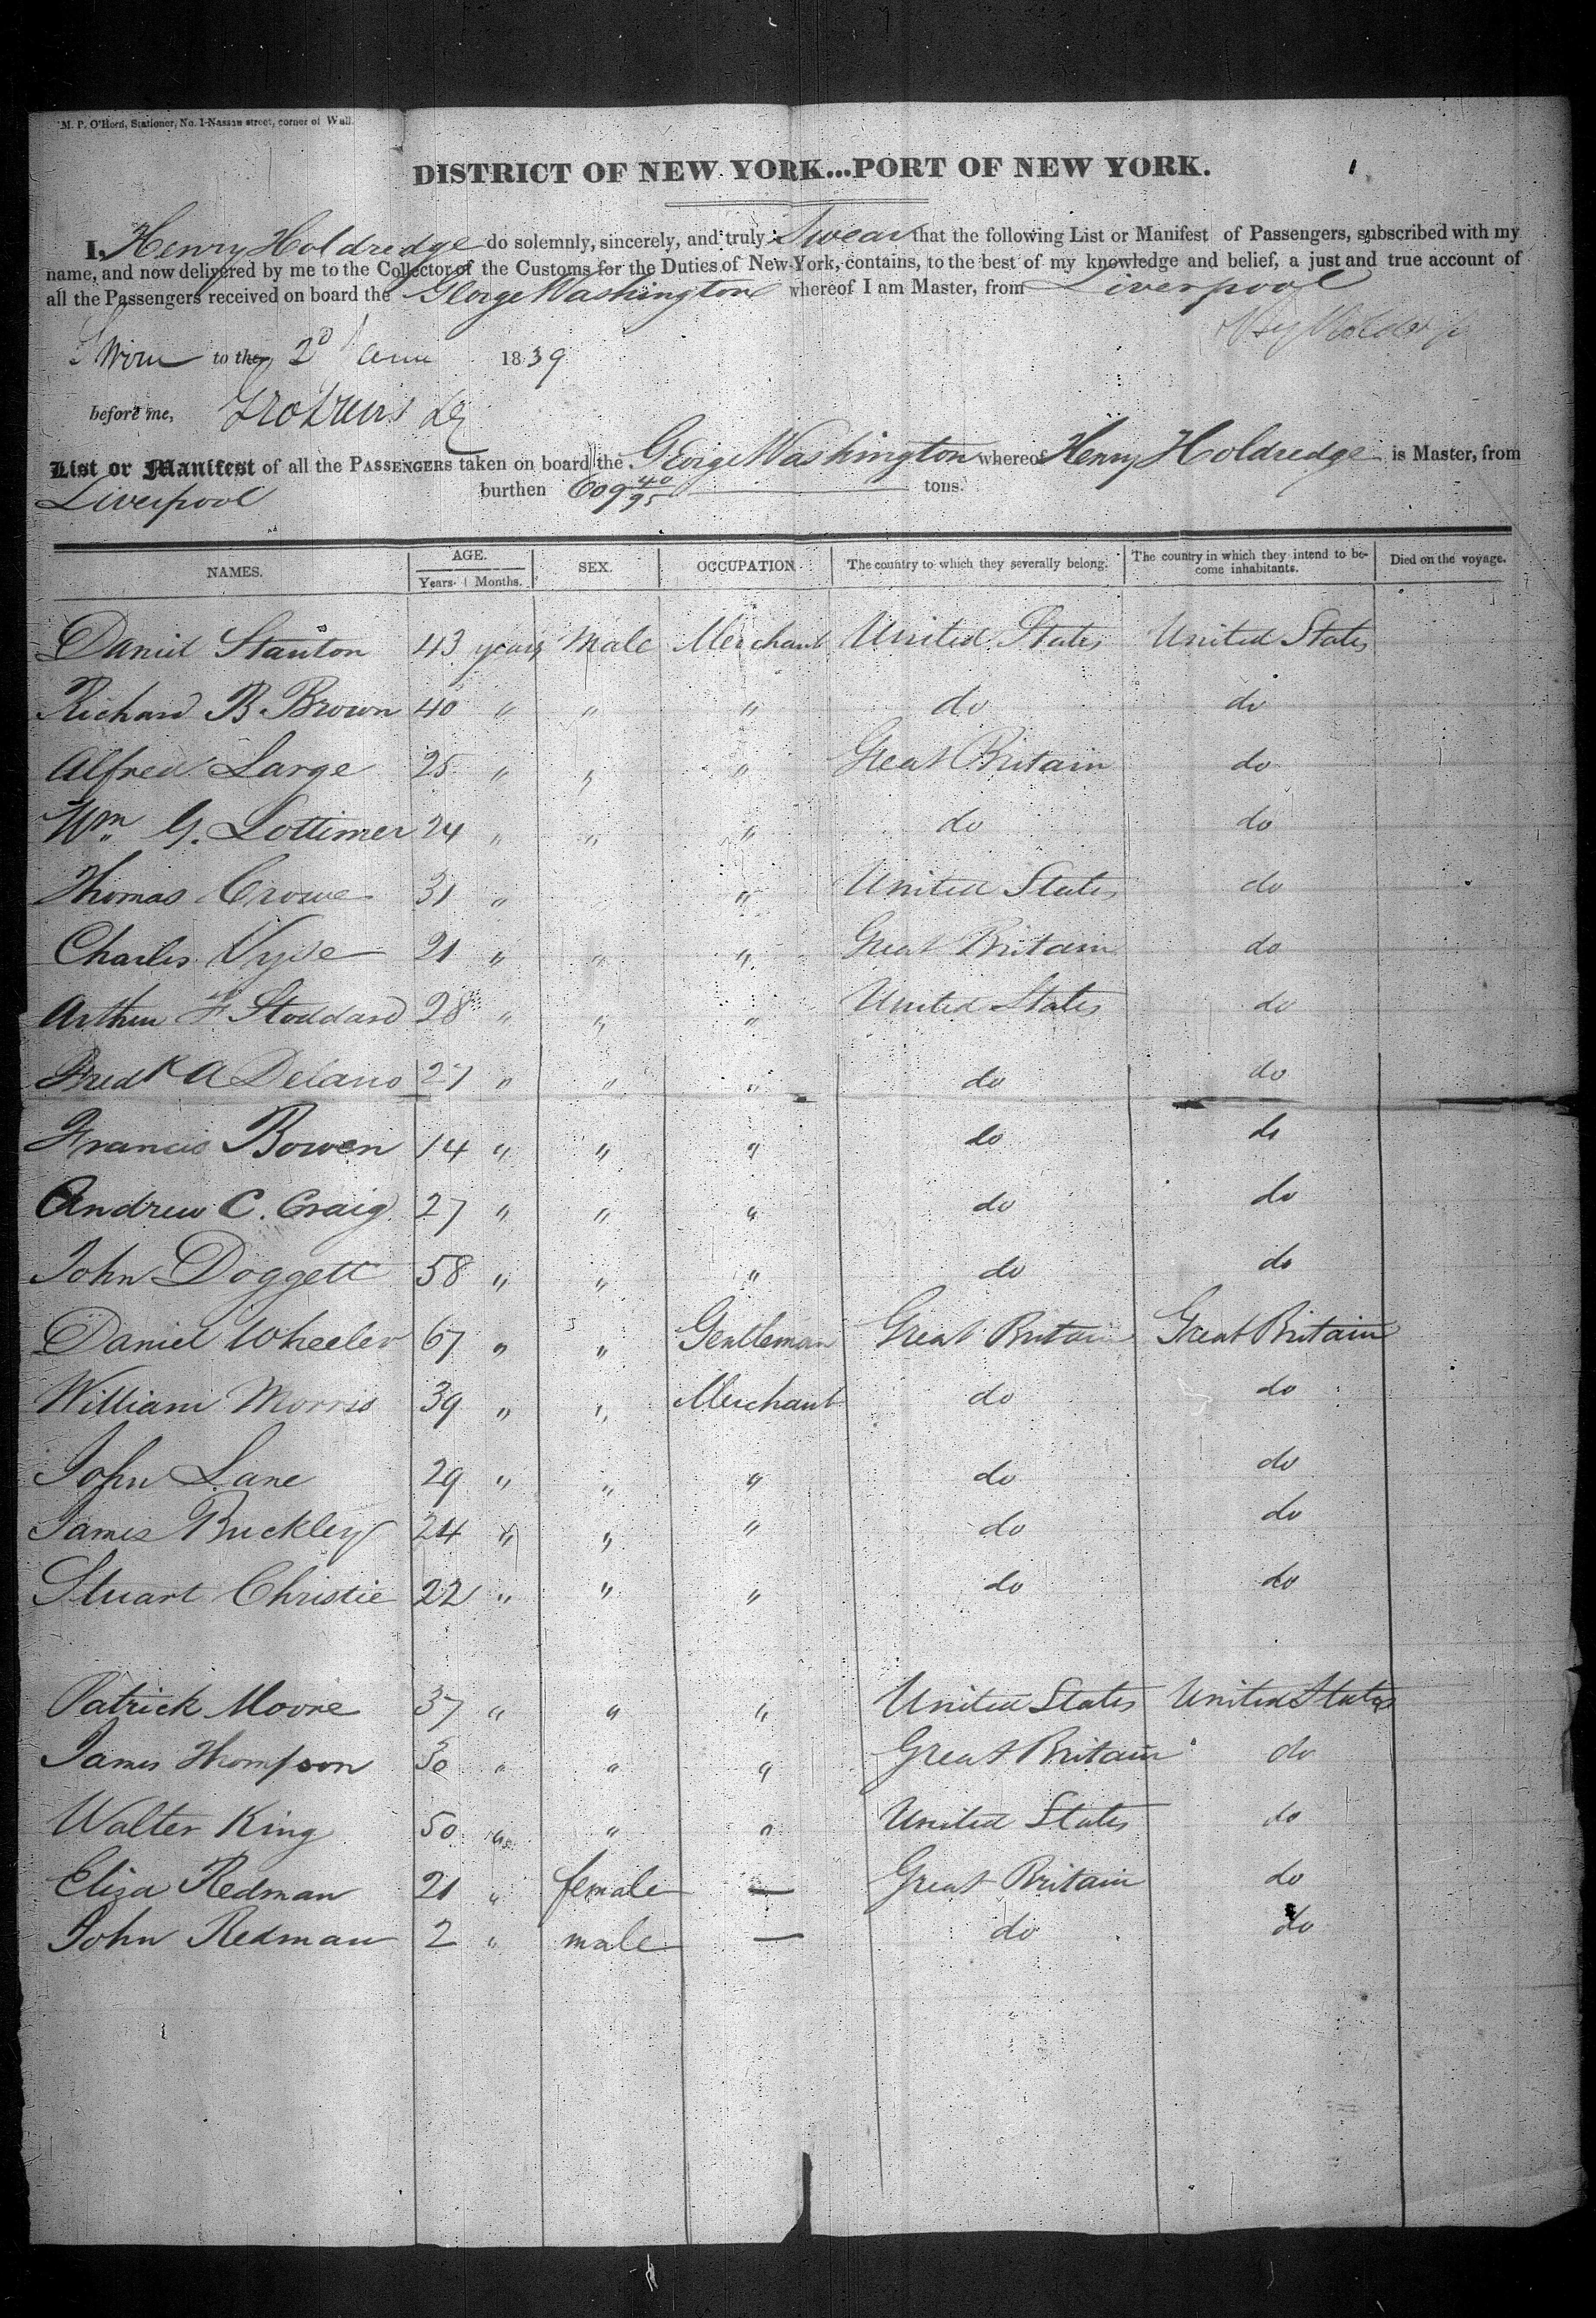 M. P. O'Horn, Stationer, No. 1 Nassau street, corner of Wall.
DISTRICT OF NEW YORK...PORT OF NEW YORK.
I, Henry Holdredge do solemnly, sincerely, and truly Swear that the following List or Manifest of Passengers, subscribed with my
name, and now delivered by me to the Collector of the Customs for the Duties of New-York, contains, to the best of my knowledge and belief, a just and true account of
all the Passengers received on board the George Washington whereof I am Master, from Liverpool
Sworn to the 2d 1839
before me,
List or Manifest of all the PASSENGERS taken on board the George Washington whereof Henry Holdredge is Master, from
Liverpool burthen 609 40/95 tons.
NAMES. AGE. SEX. OCCUPATION The country to which they severally belong. The country in which they intend to be- Died on the voyage.
Years Months. come inhabitants.
Daniel Stanton 43 years Male Merchant United States United States
Richard B. Brown 40 " " " do do
Alfred Large 25 " " " Great Britain do
Wm G. Lottimer 24 " " " do do
Thomas Crowe 31 " " United States do
Charles Vyse 21 " " " Great Britain do
Arthur F. Stoddard 28 " " " United States do
Fredk A Delano 27 " " " do do
Francis Bowen 14 " " " do do
Andrew C. Craig 27 " " " do do
John Doggett 58 " " " do do
Daniel Wheeler 67 " " Gentleman Great Britain Great Britain
William Morris 39 " " Merchant do do
John Lane 29 " " " do do
James Buckley 24 " " " do do
Stuart Christie 22 " " " do do
Patrick Moore 37 " " " United States United States
James Thompson 30 " " " Great Britain do
Walter King 50 " " " United States do
Eliza Redman 21 " female — Great Britain do
John Redman 2 " male — do do